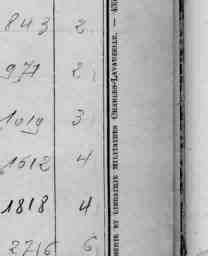 843 2
971 2
1019 3
1612 4
1818 4
2716 6
ET LIBRAIRIE MILITAIRES CHARLES-LAVAUZELLE. —